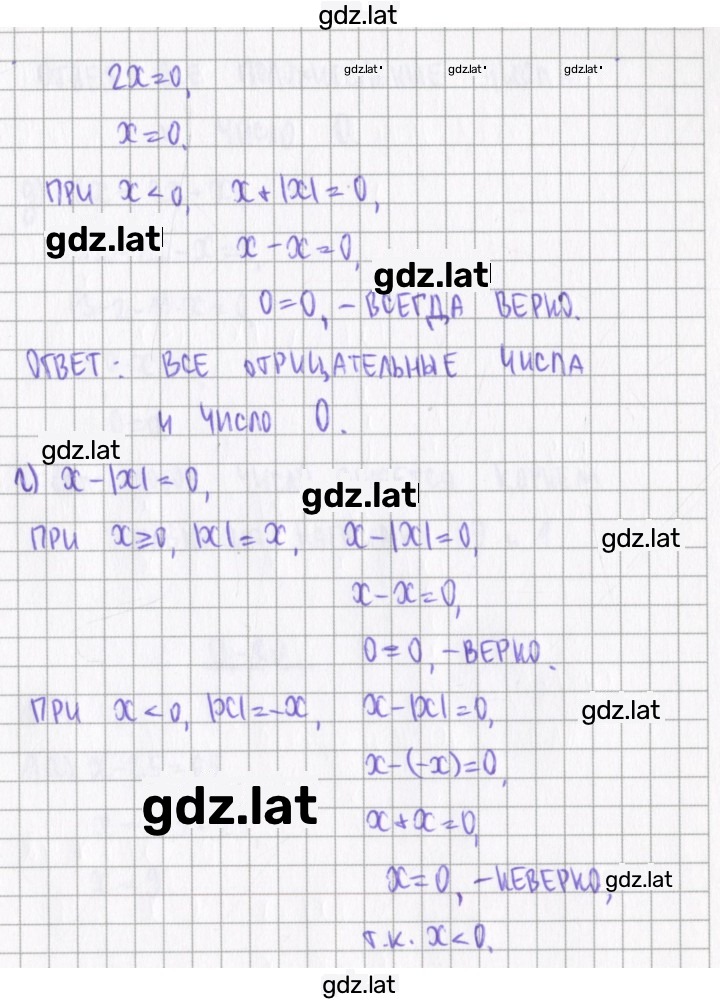 gdz.lat
2x=0,
gdz.lat gdz.lat gdz.lat
x=0.
ПРИ x<0, x+|x|=0,
gdz.lat
x-x=0,
gdz.lat
0=0, - ВСЕГДА ВЕРНО.
ОТВЕТ: ВСЕ ОТРИЦАТЕЛЬНЫЕ ЧИСЛА
И ЧИСЛО 0.
gdz.lat
г) x-|x|=0,
gdz.lat
ПРИ x≥0, |x|=x, x-|x|=0,
gdz.lat
x-x=0,
0=0, - ВЕРНО.
ПРИ x<0, |x|=-x, x-|x|=0,
gdz.lat
x-(-x)=0,
gdz.lat
x+x=0,
x=0, - НЕВЕРНО,
gdz.lat
т.к. x<0.
gdz.lat